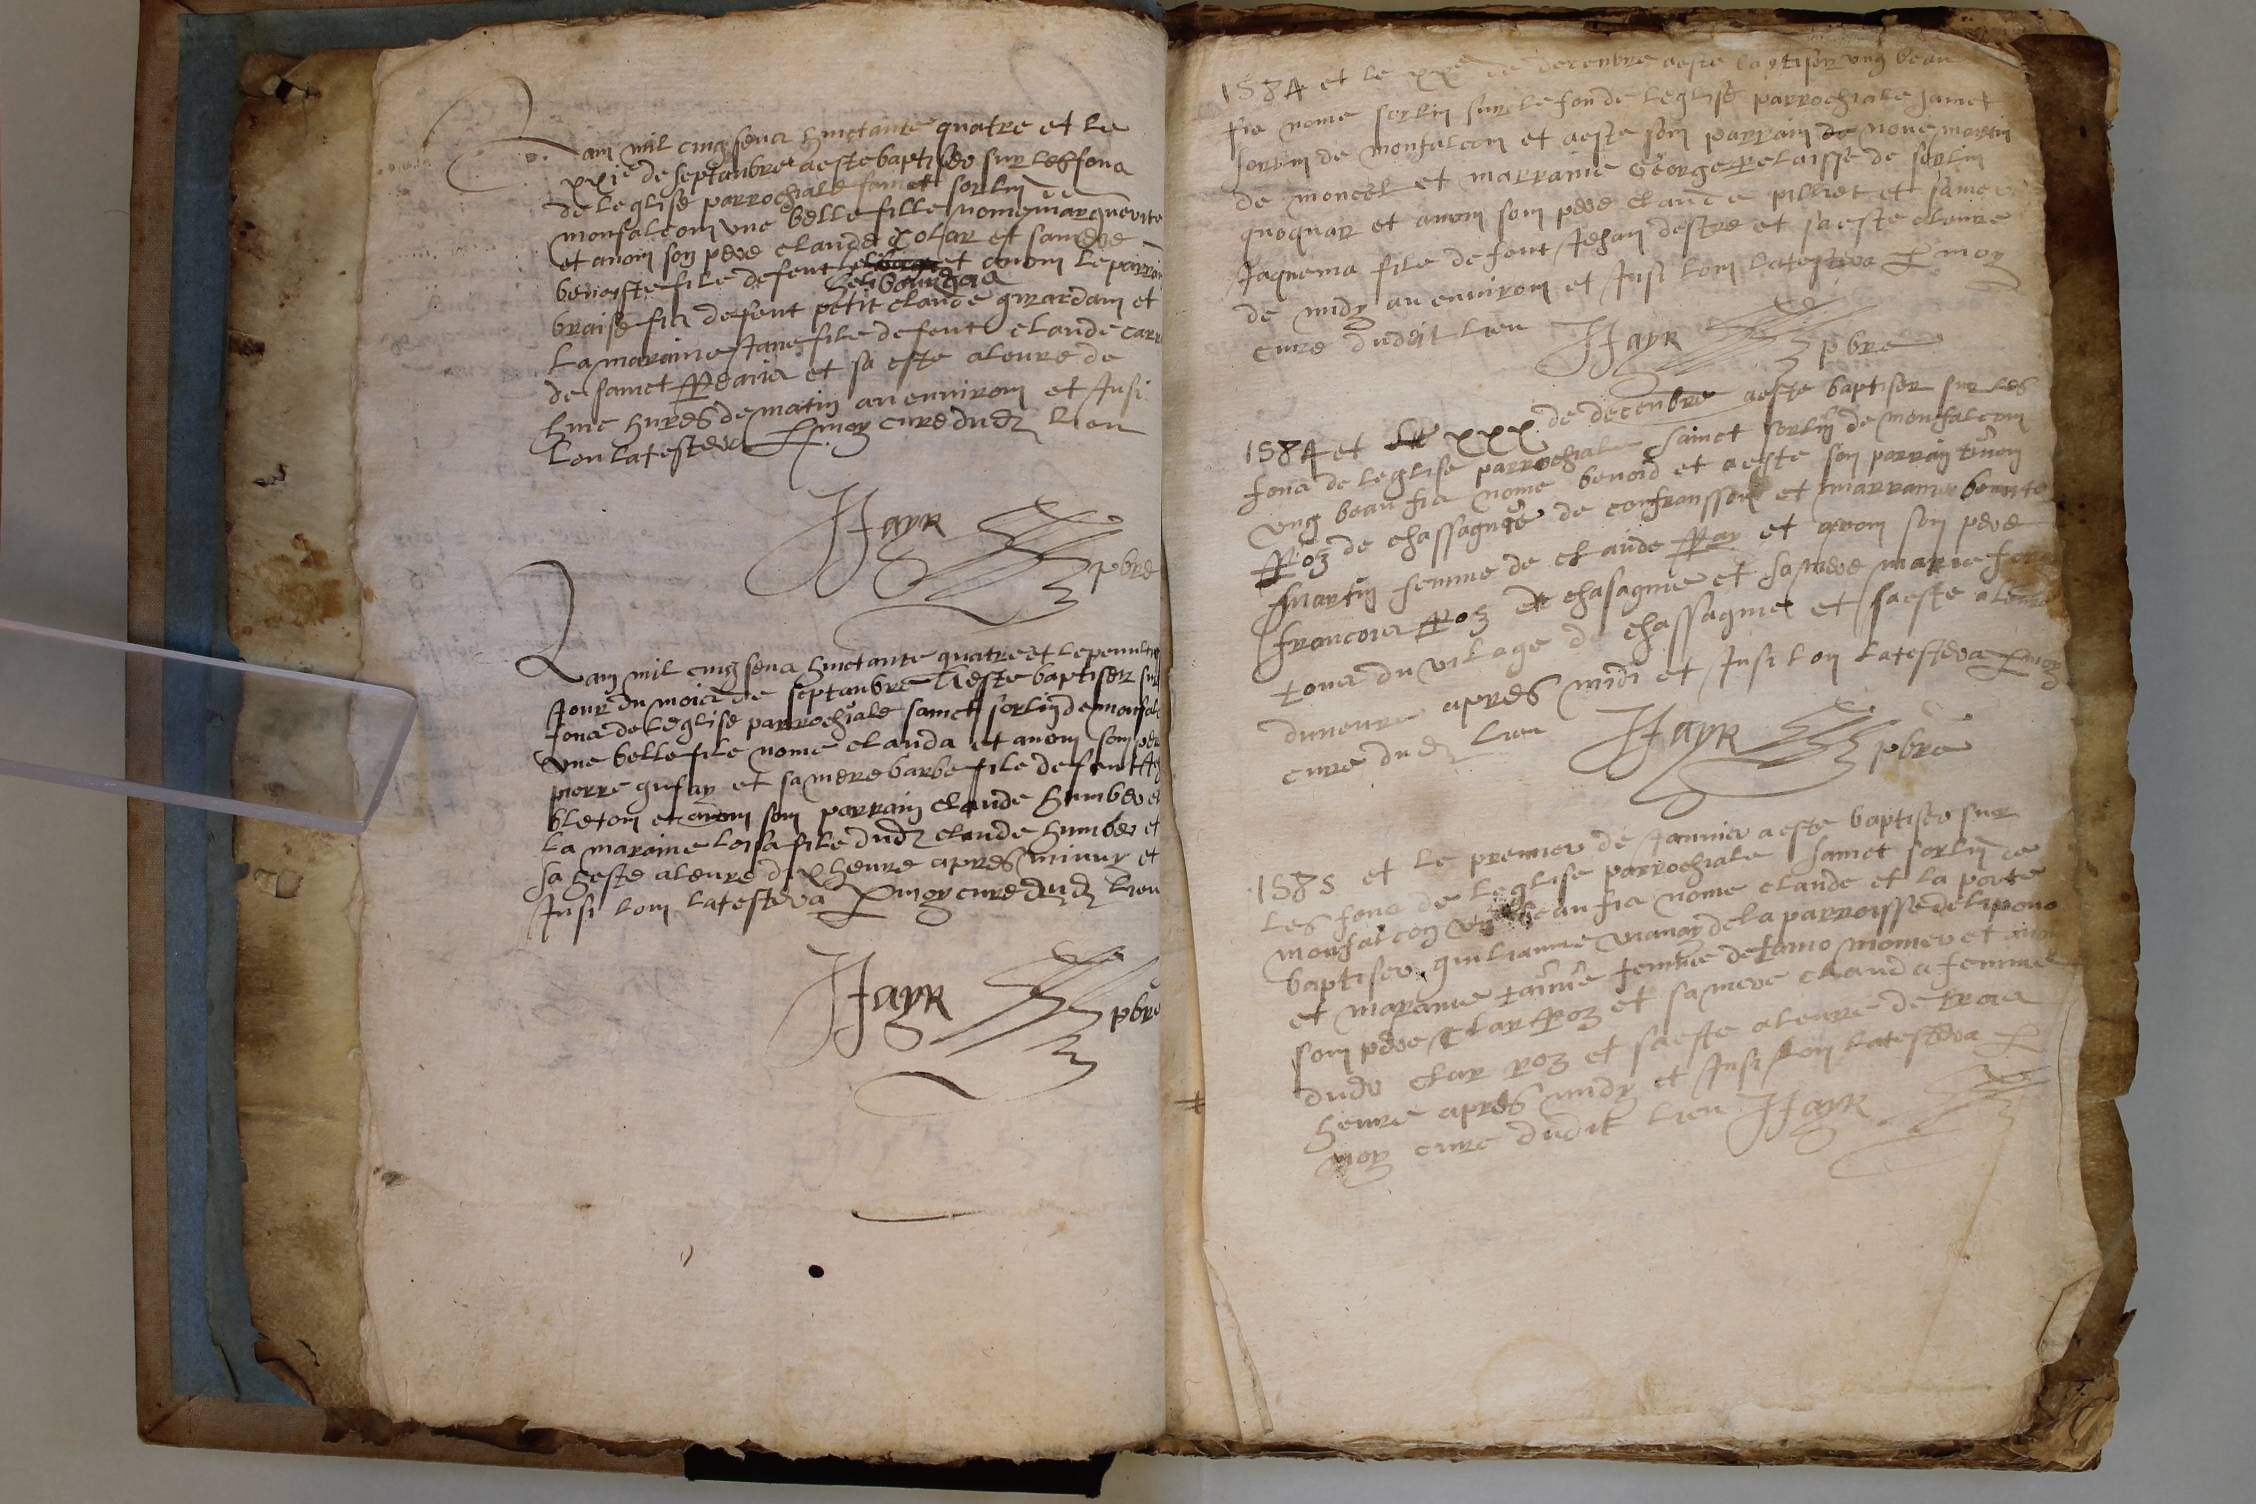 Lan mil cinq sena huictante quatre et le
xxie de septanbre aeste baptiseo sur les fona
de leglise parrochiale sainct sorlin de
monfalcom une belle fille nome marguerite
et avom son pere claude Colar et samere
benoiste file defeut et avom le parrain
helibourgea
braise fia defeut petit claude girardam et
La maraine Jane file defeut claude carr
de sainct et sa este aleure de
huic hures de matin an environ et Jnsi
lon latestera p moy cure dud lieu
Hayr pbre
Lan mil cinq sena huictante quatre et lepenultie
Jour du moia de septanbre aeste baptiser sur
fona de leglise parrochiale sainct sorlin de monfal
une belle file nome clauda et avom som pere
pierre gufay et samere barbe file defeut
bletom et avom som parrain claude humbeo et
La maraine loisa file dud claude humbeo et
sa heste aleure dix heure apres minuy et
Jnsi lom latestera p moy cure dud lieu
Hayr pbre
1584 et le xxe de decenbre aeste baptiser ung beau
fia nome sorlin sur le fon de leglise parrochiale sainct
sorlin de monfalcon et aeste som parrain de nove martin
de moncel et marraine george relaisse de sorlin
quoquar et avom som pere claude pilliet et samere
Jaquema file defeut Jehan destre et saeste aleure
de midy an environ et Jnsi lom latestera p moy
cure dudit lieu Hayr pbre
1584 et le xxx de decenbre aeste baptiser sur les
fona de leglise parrochiale sainct sorlin de monfalcom
ung beau fia nome benoid et aeste som parrain
Roz de chassagne de confransson et marraine benoite
martin femme de claude Ray et avom som pere
francoia Roz de chasagne et samere marie
toua du vilage de chassagnie et saeste aleure
duneure apres midi et Jnsi lon latestera p moy
cure dud lieu Hayr pbre
1585 et le premier de Janvier aeste baptiseo sur
les fona de leglise parrochiale sainct sorlin de
monfalcon ung beau fia nome claude et la porte
baptiseo guiliaume vianay de la parroisse de lipono
et maraine femme de momeo et avom
som pere Clar Roz et samere clauda femme
dudo clar roz et saeste aleure de troia
heure apres midy et Jnsi lon latestera p
moy cure dudit lieu Hayr